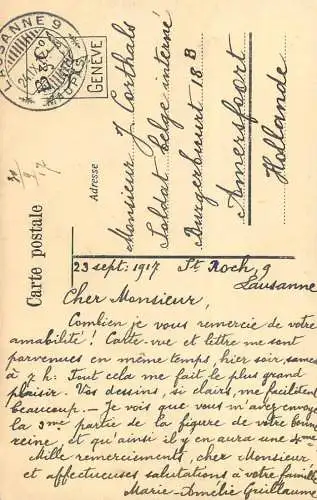 LAUSANNE 9
GENÈVE
Carte postale
Adresse
Monsieur J. Corthals
Soldat belge interné
Burgerbuurt 18 B
Amersfoort
Hollande
23 sept: 1917 St Roch, 9
Lausanne
Cher Monsieur,
Combien je vous remercie de votre
amabilité! Carte-vue et lettre me sont
parvenues en même temps, hier soir, samedi
à 7 h. Tout cela me fait le plus grand
plaisir. Vos dessins, si clairs, me facilitent
beaucoup. — Je vois que vous m'avez envoyé
la 3me partie de la figure de votre bonne
reine, et qu'ainsi il y en aura une 4me
Mille remerciements, cher Monsieur
et affectueuses salutations à votre famille
Marie-Amélie Guillaume